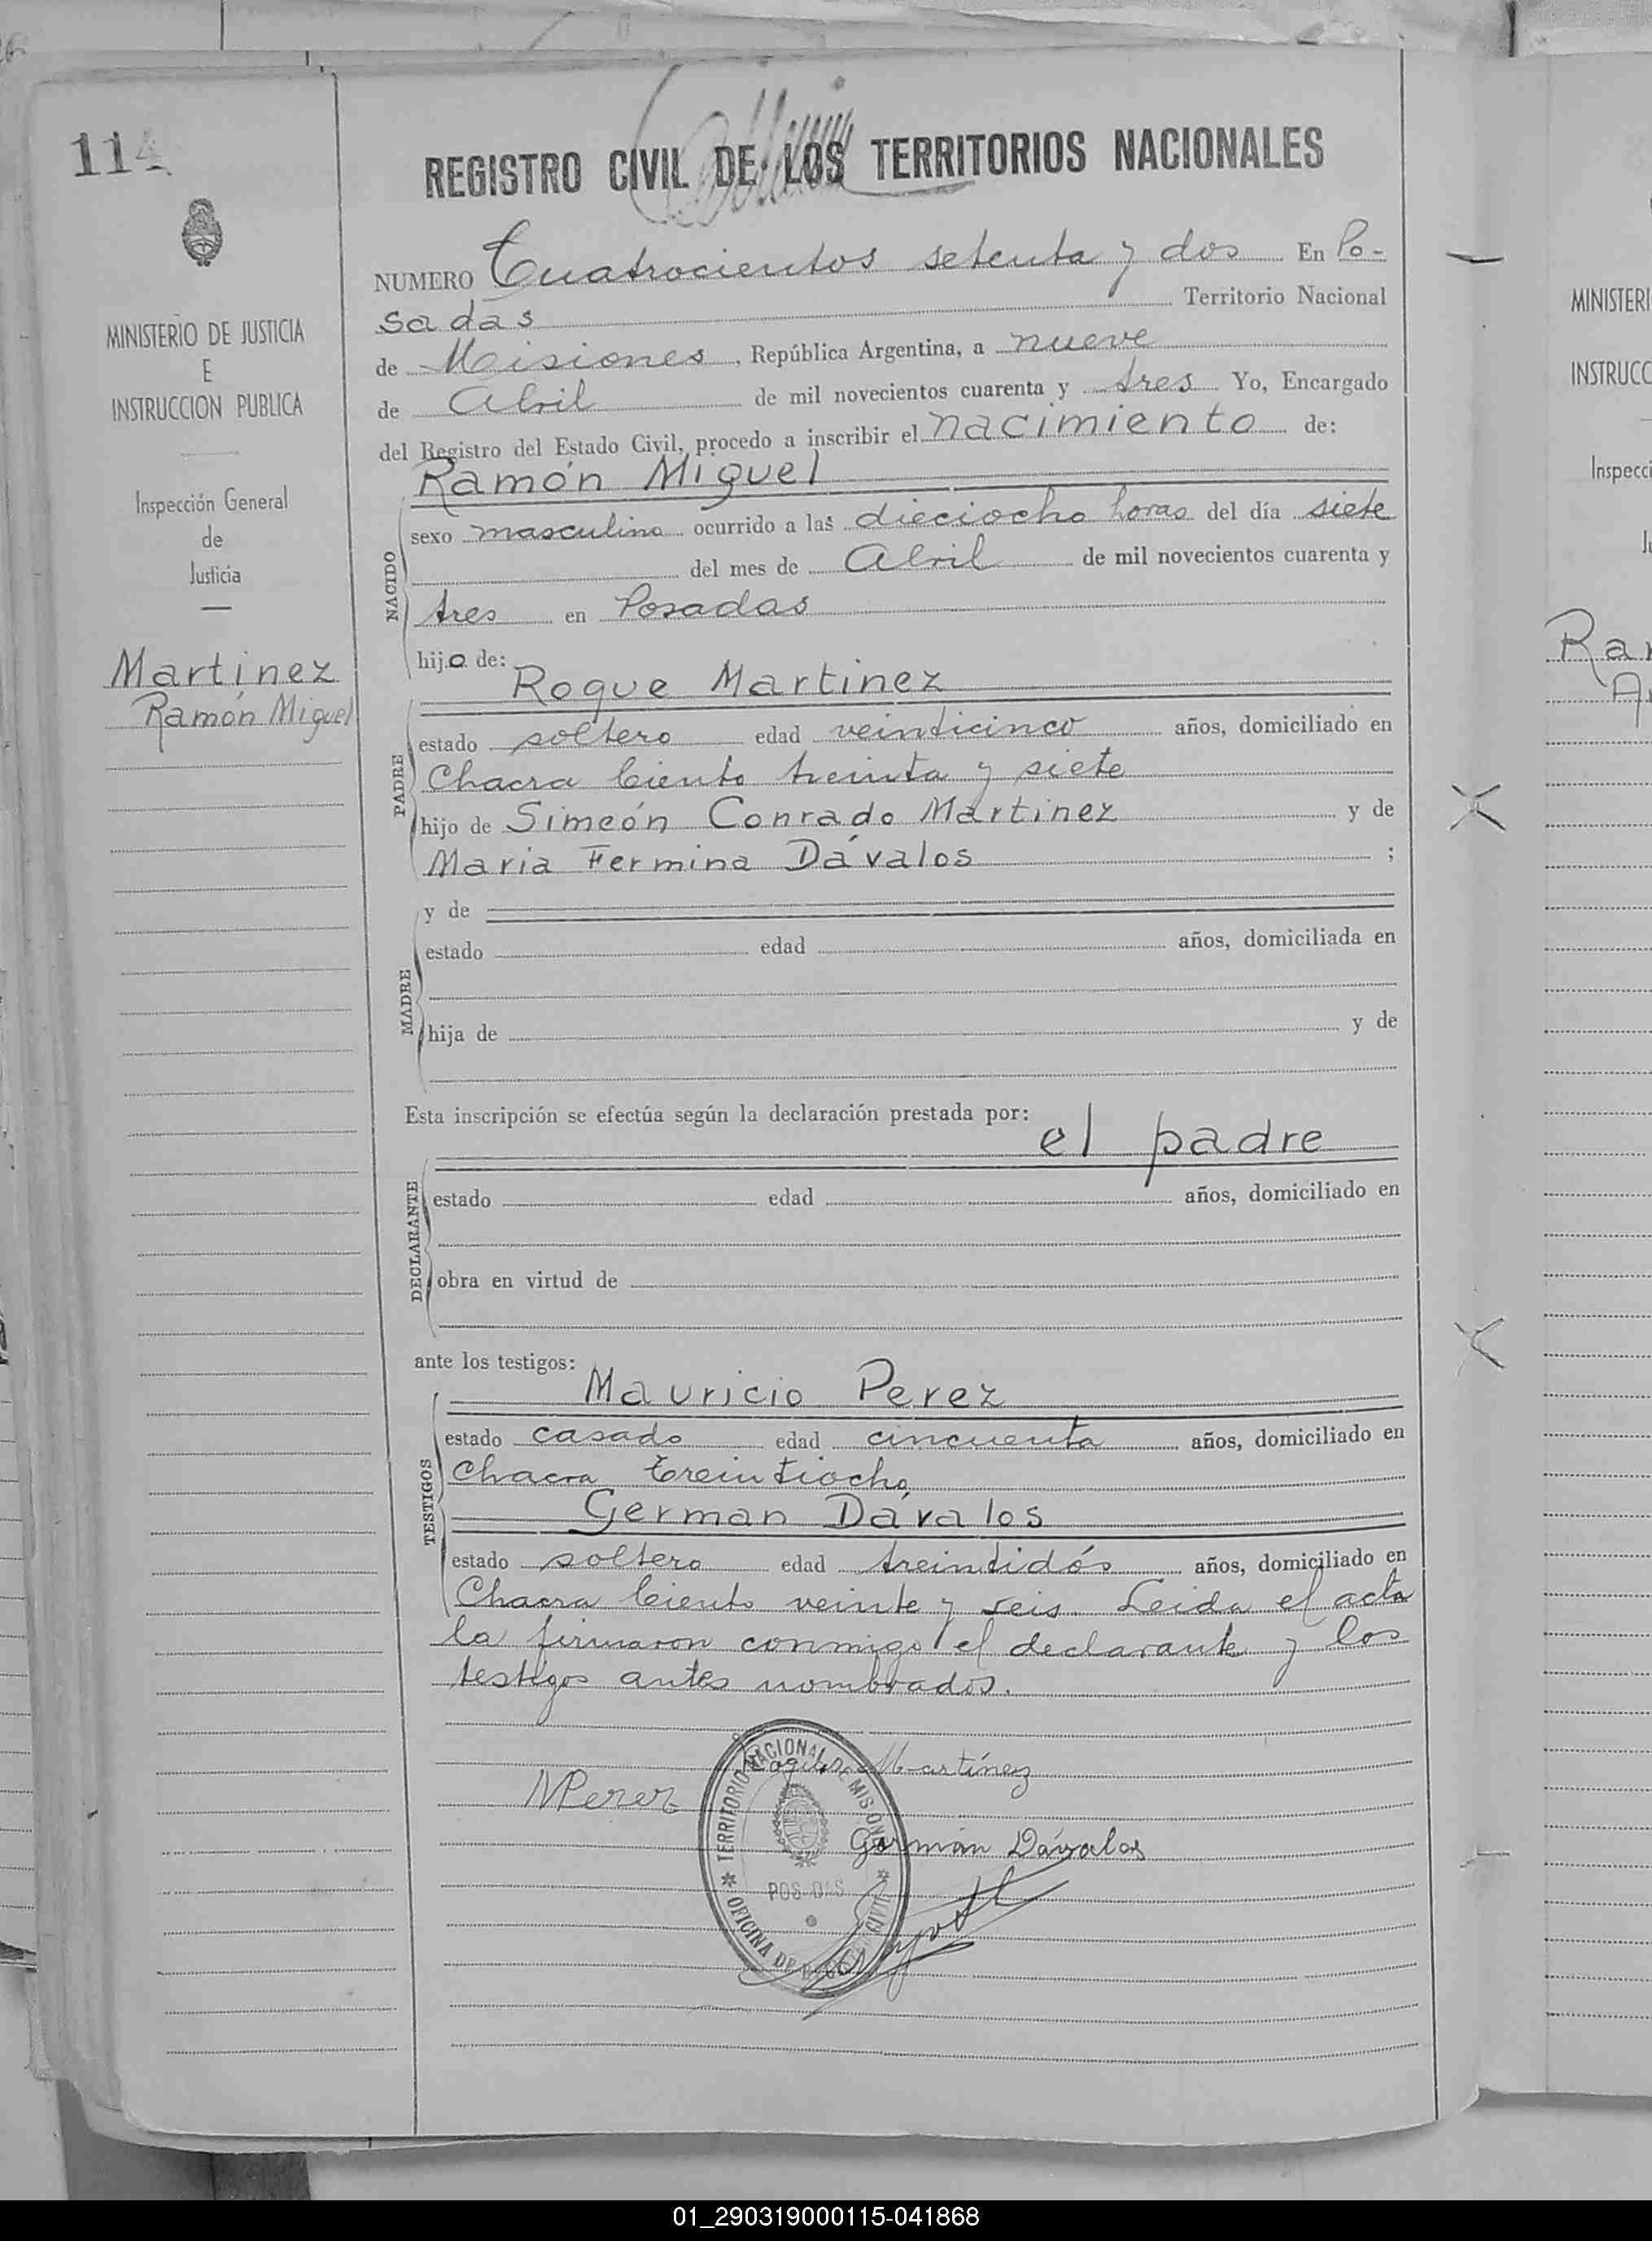 114
REGISTRO CIVIL DE LOS TERRITORIOS NACIONALES
MINISTERIO DE JUSTICIA
E
INSTRUCCION PUBLICA
Inspección General
de
Justicia
Martínez
Ramón Miguel
NUMERO Cuatrocientos setenta y dos En Po-
sadas Territorio Nacional
de Misiones, República Argentina, a nueve
de Abril de mil novecientos cuarenta y tres Yo, Encargado
del Registro del Estado Civil, procedo a inscribir el nacimiento de:
Ramón Miguel
NACIDO
sexo masculino ocurrido a las dieciocho horas del día siete
del mes de Abril de mil novecientos cuarenta y
tres en Posadas
hijo de:
Roque Martinez
PADRE
estado soltero edad veinticinco años, domiciliado en
Chacra Ciento treinta y siete
hijo de Simeón Conrado Martinez y de
Maria Fermina Dávalos ;
MADRE
y de
estado edad años, domiciliada en
hija de y de
Esta inscripción se efectúa según la declaración prestada por:
el padre
DECLARANTE
estado edad años, domiciliado en
obra en virtud de
ante los testigos:
Mauricio Perez
TESTIGOS
estado casado edad cincuenta años, domiciliado en
Chacra treintiocho
German Dávalos
estado soltero edad treintidós años, domiciliado en
Chacra Ciento veinte y seis. Leida el acta
la firmaron conmigo el declarante y los
testigos antes nombrados.
Martínez
MPerez
Germán Dávalos
TERRITORIO NACIONAL DE MISIONES
POSADAS
OFICINA DE CIVIL
MINISTERI
INSTRUCC
Inspecci
Ju
Ra
01_290319000115-041868